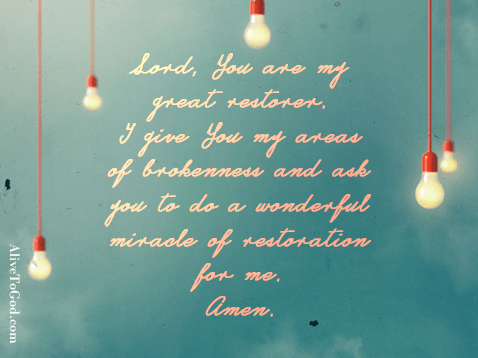 Lord, You are my
great restorer.
I give You my areas
of brokenness and ask
you to do a wonderful
miracle of restoration
for me.
Amen.
AliveToGod.com